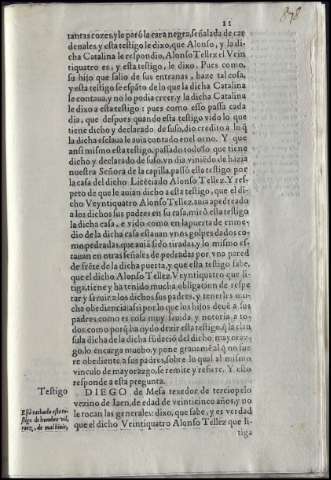 11
878
tantas cozes, y le paró la cara negra, señalada de car
denales, y esta testigo le dixo, que Alonso, y la di
cha Catalina le respondio, Alonso Tellez el Vein
tiquatro es: y esta testigo, le dixo. Pues como,
su hijo que salio de sus entrañas, haze tal cosa,
y esta testigo se espãto de lo que la dicha Catalina
le contaua, y no lo podia creer, y la dicha Catalina
le dixo a esta testigo: pues como esso passa cada
dia, que despues quando esta testigo vido lo que
tiene dicho y declarado de suso, dio credito a lo q̃
la dicha esclaua le auia contado en el orno. Y que
ansi mismo esta testigo, passado todo lo que tiene
dicho y declarado de suso, vn dia viniẽdo de hazia
nuestra Señora de la capilla, passó esta testigo por
la casa del dicho Licẽciado Alonso Tellez. Y res
peto de que le auian dicho a esta testigo, que el di
cho Veyntiquatro Alonso Tellez, auia apedreado
a los dichos sus padres en su casa, miró esta testigo
la dicha casa, e vido como en la puerta de enme-
dio de la dicha casa estauan vnos golpes dados co
mo pedradas, que auiã sido tiradas, y lo mismo es
tauan en otras señales de pedradas por vna pared
de frẽte de la dicha puerta, y que esta testigo sabe,
que el dicho Alonso Tellez Veyntiquatro que li-
tiga, tiene y ha tenido mucha obligacion de respe
tar y seruir a los dichos sus padres, y tenerles mu-
cha obediencia assi por lo que los hijos deuẽ a sus
padres, como es cosa muy sauida, y notoria a to-
dos, como porq̃ ha oydo dezir esta testigo, q̃ la clau
sula dicha de la dicha fũdeció del dicho, mayoraz-
go, lo encarga mucho, y pone grauamẽ al q̃ no fue
re obediente a sus padres, sobre lo qual al mismo
vinculo de mayorazgo, se remite y refiere. Y esto
responde a esta pregunta.
Testigo
DIEGO de Mesa texedor, de terciopelo
vezino de Iaen, de edad de veinticinco años, y no
le tocan las generales: dixo, que sabe, y es verdad
que el dicho Veintiquatro Alonso Tellez que li-
tiga
Està tachado este te-
stigo de hombre vil,